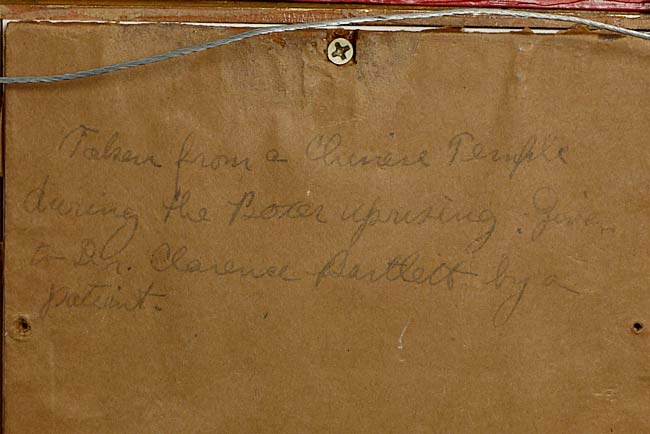 Taken from a Chinese Temple
during the Boxer uprising. Given
to Dr. Clarence Bartlett by a
patient.